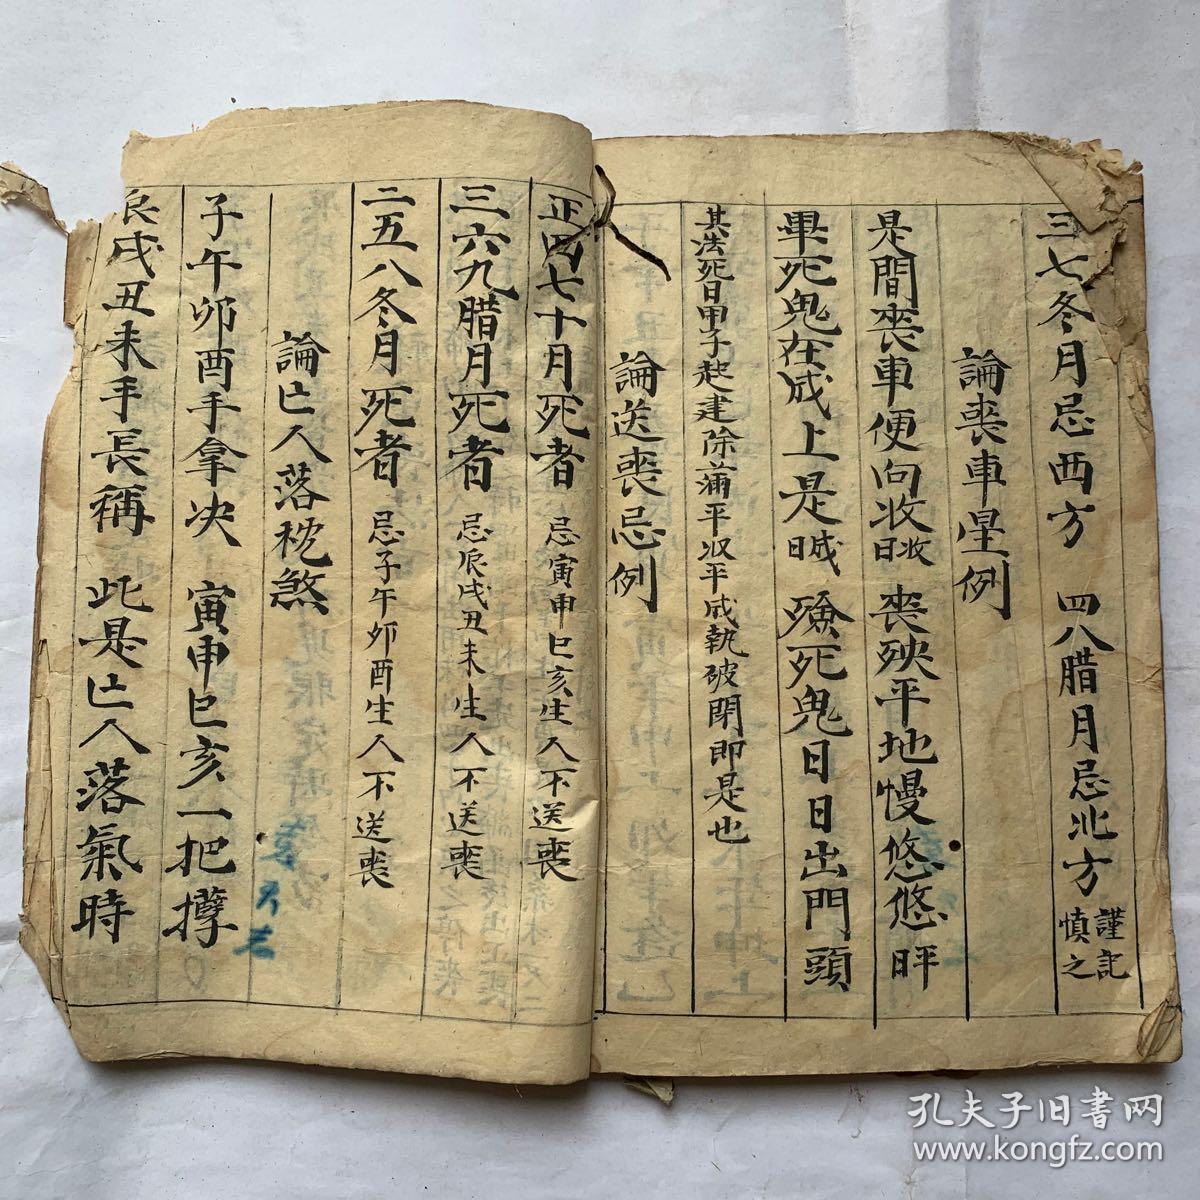 三七冬月忌西方　四八腊月忌北方 謹記慎之
論喪車星例
是間喪車便向收 收日 喪殃平地慢悠悠 平日
畢死鬼在成上是 成日 殮死鬼日日出門頭
其法死日甲子起建除滿平收平成執破閉即是也
論送喪忌例
正四七十月死者 忌寅申巳亥生人不送喪
三六九腊月死者 忌辰戌丑未生人不送喪
二五八冬月死者 忌子午卯酉生人不送喪
論亡人落枕煞
子午卯酉手拿决　寅申巳亥一把撑
辰戌丑未手長稱　此是亡人落氣時
孔夫子旧書网
www.kongfz.com